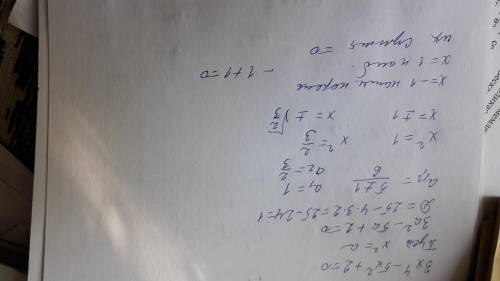 3x⁴-5x²+2=0
Пусть x²=a
3a²-5a+2=0
D=25-4·3·2=25-24=1
a₁,₂= (5±1)/6 a₁=1
a₂=2/3
x²=1 x²=2/3
x=±1 x=±√(2/3)
x=-1 наим корень
x=1 наиб. -1+1=0
их сумма =0